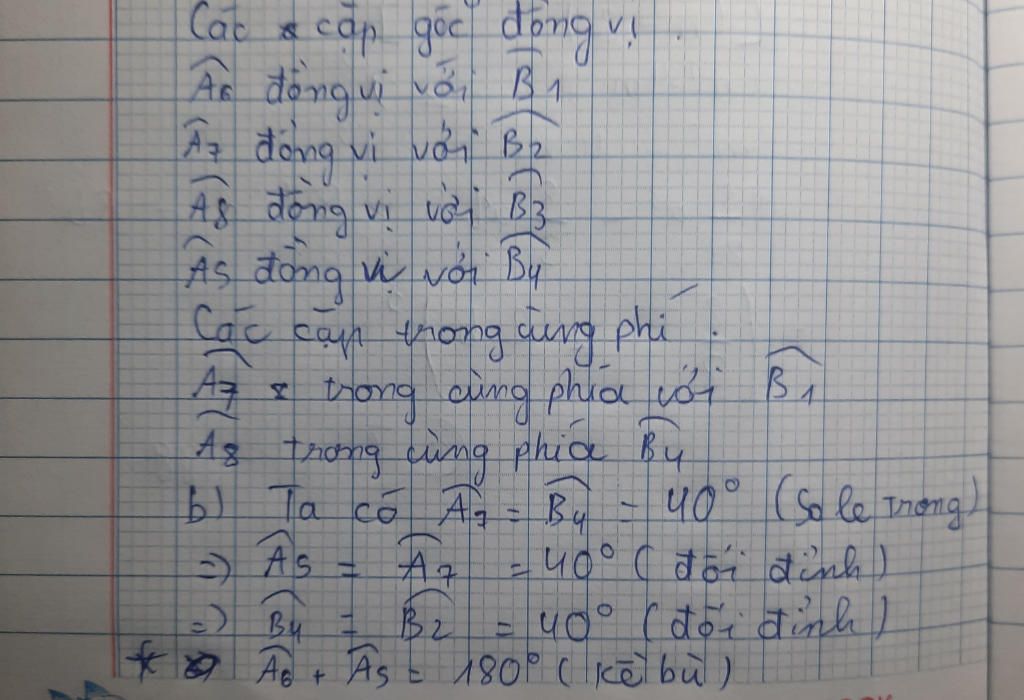 Các cặp góc đồng vị.
A6 đồng vị với B1
A7 đồng vị với B2
A8 đồng vị với B3
A5 đồng vị với B4
Các cặp trong cùng phí.
A7 trong cùng phía với B1
A8 trong cùng phía B4
b) Ta có A7 = B4 = 40° (So le trong)
=> A5 = A7 = 40° (đối đỉnh)
=> B4 = B2 = 40° (đối đỉnh)
* A6 + A5 = 180° (kề bù)